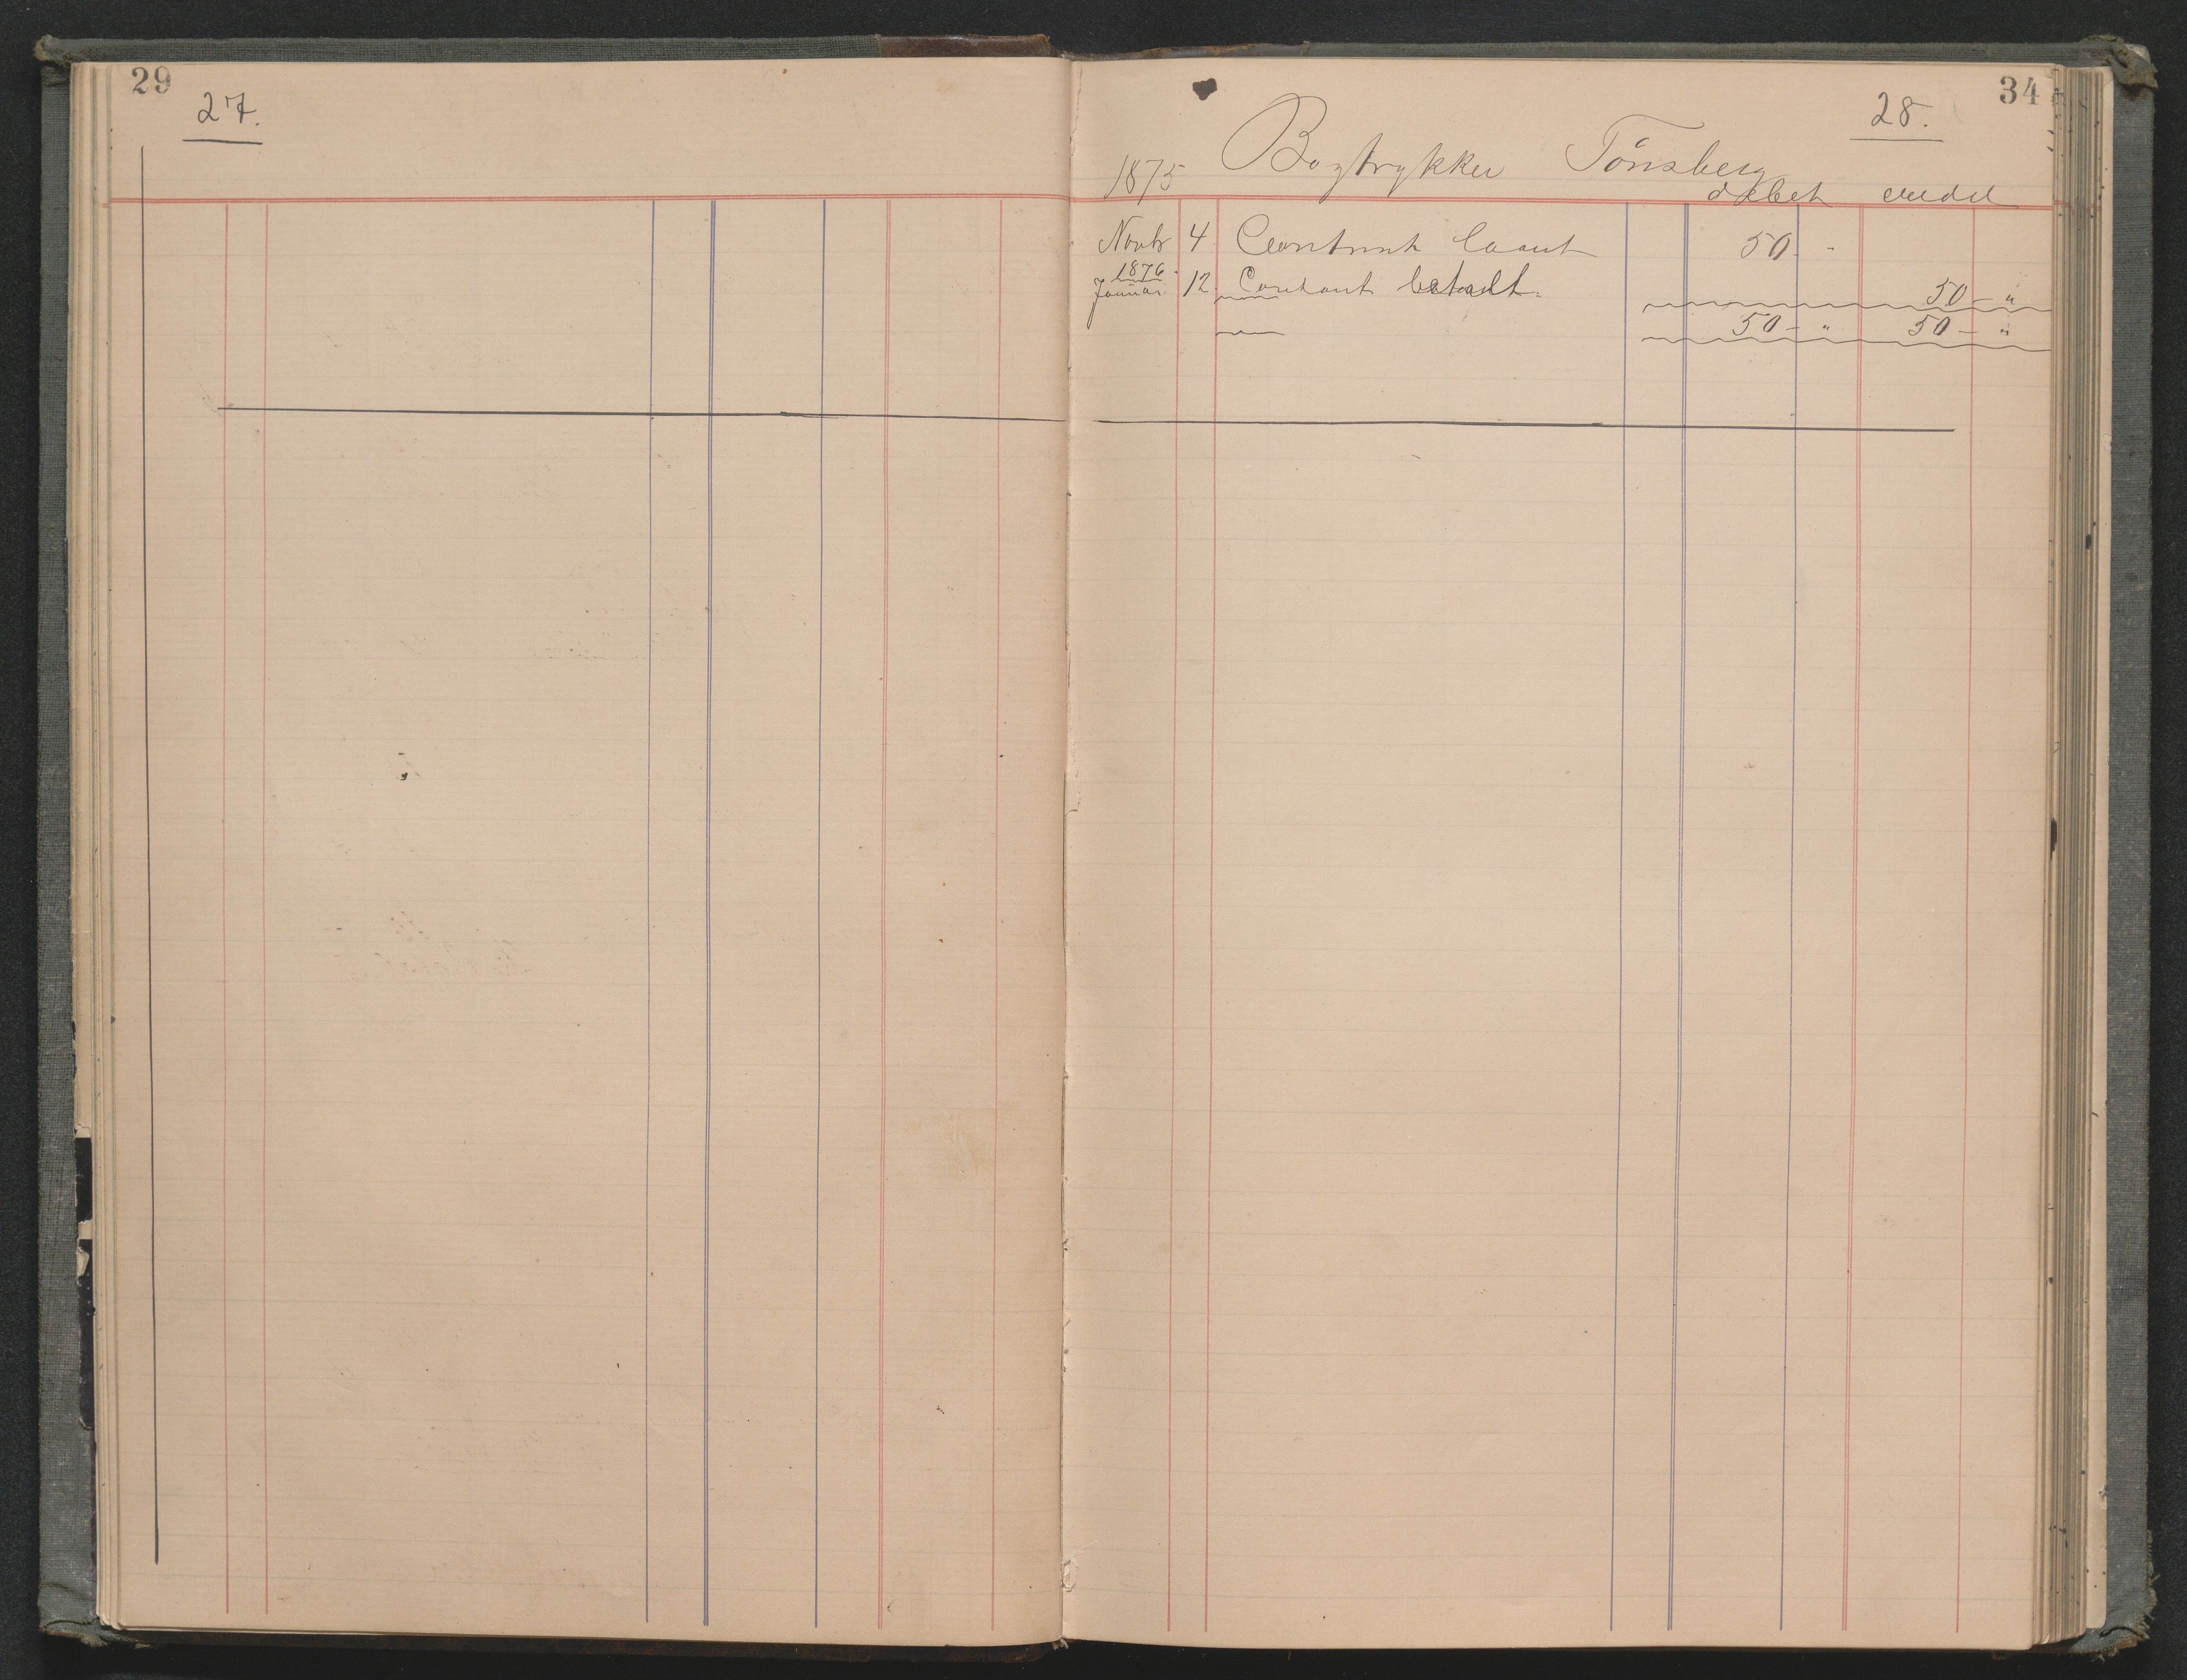 29
27.
34
28.
1875 Bogtrykker Tönsberg
debet credit
Novbr 4 Contant laant 50 - "
1876
Januar 12 Contant betalt. 50 - "
50 - " 50 - "